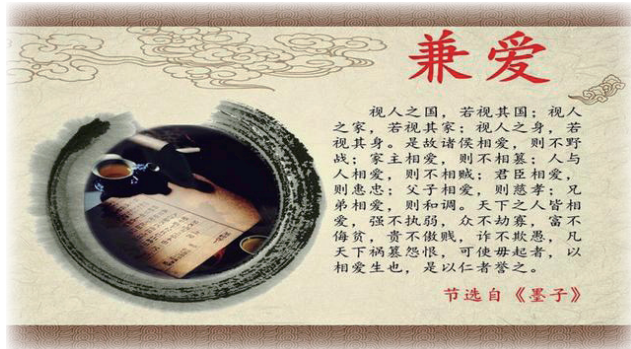 兼爱
视人之国，若视其国；视人
之家，若视其家；视人之身，若
视其身。是故诸侯相爱，则不野
战；家主相爱，则不相篡；人与
人相爱，则不相贼；君臣相爱，
则惠忠；父子相爱，则慈孝；兄
弟相爱，则和调。天下之人皆相
爱，强不执弱，众不劫寡，富不
侮贫，贵不傲贱，诈不欺愚，凡
天下祸篡怨恨，可使毋起者，以
相爱生也，是以仁者誉之。
节选自《墨子》